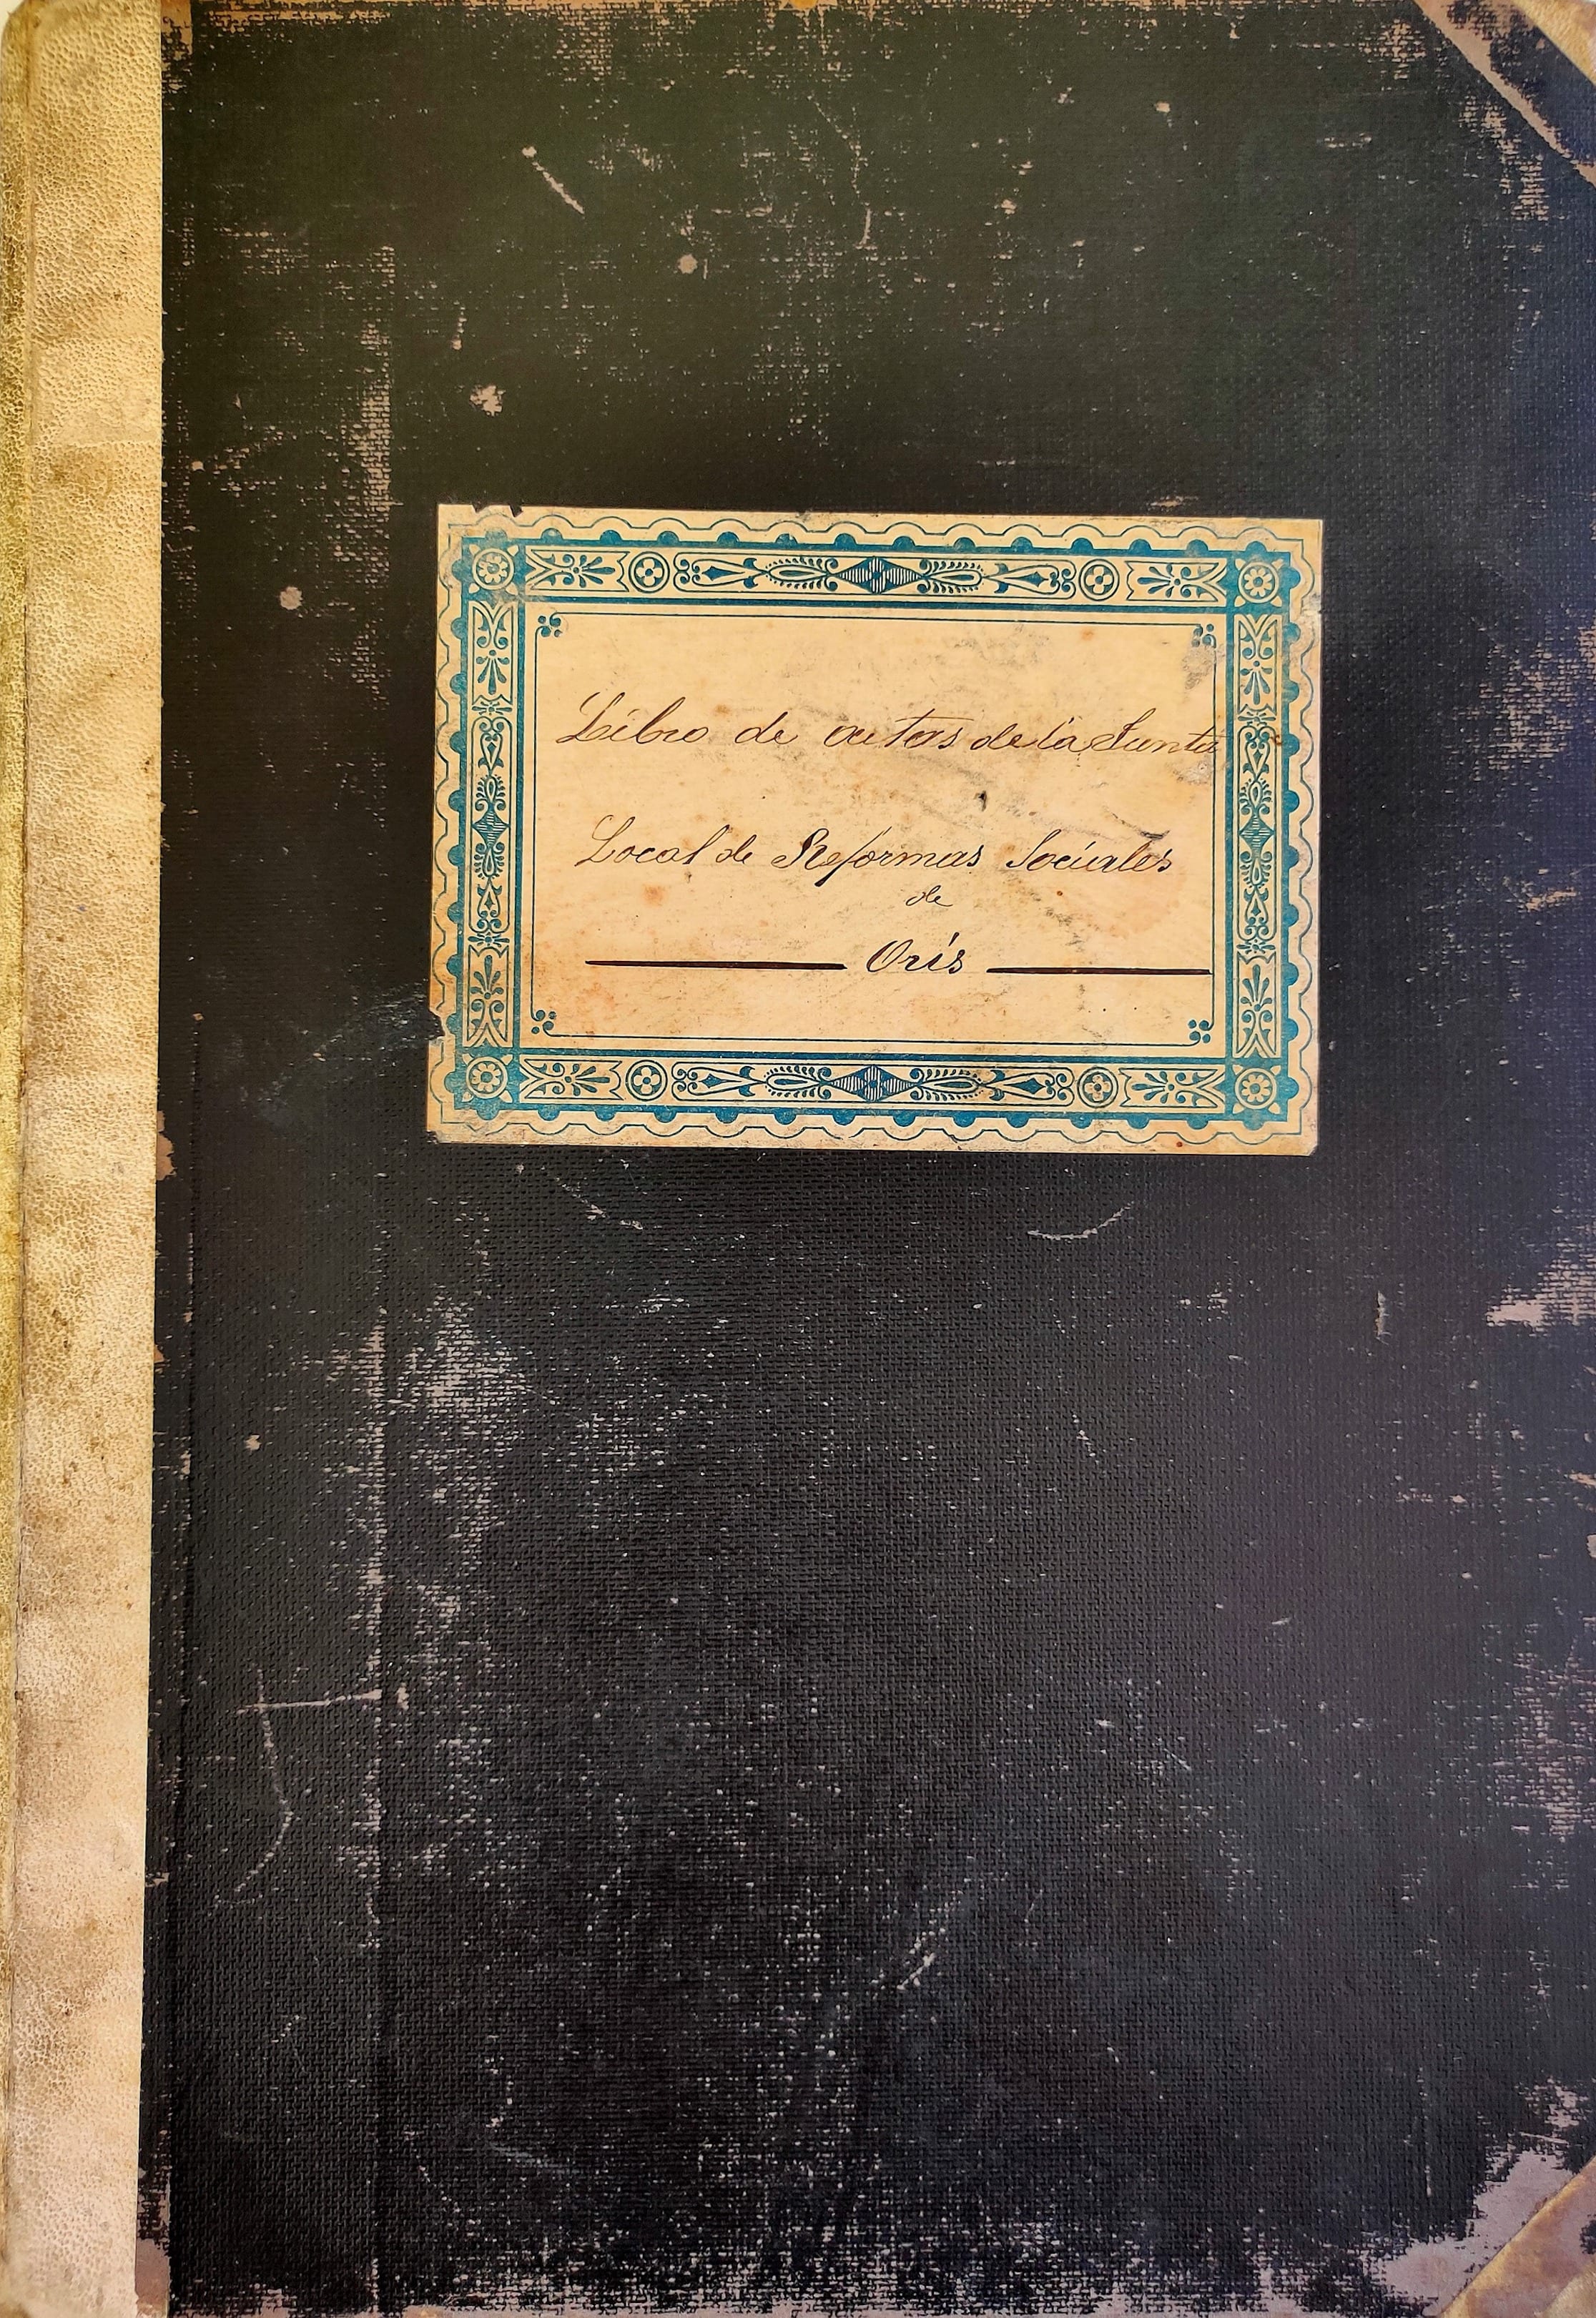 Libro de actas de la Junta
Local de Reformas Sociales
de
Orís